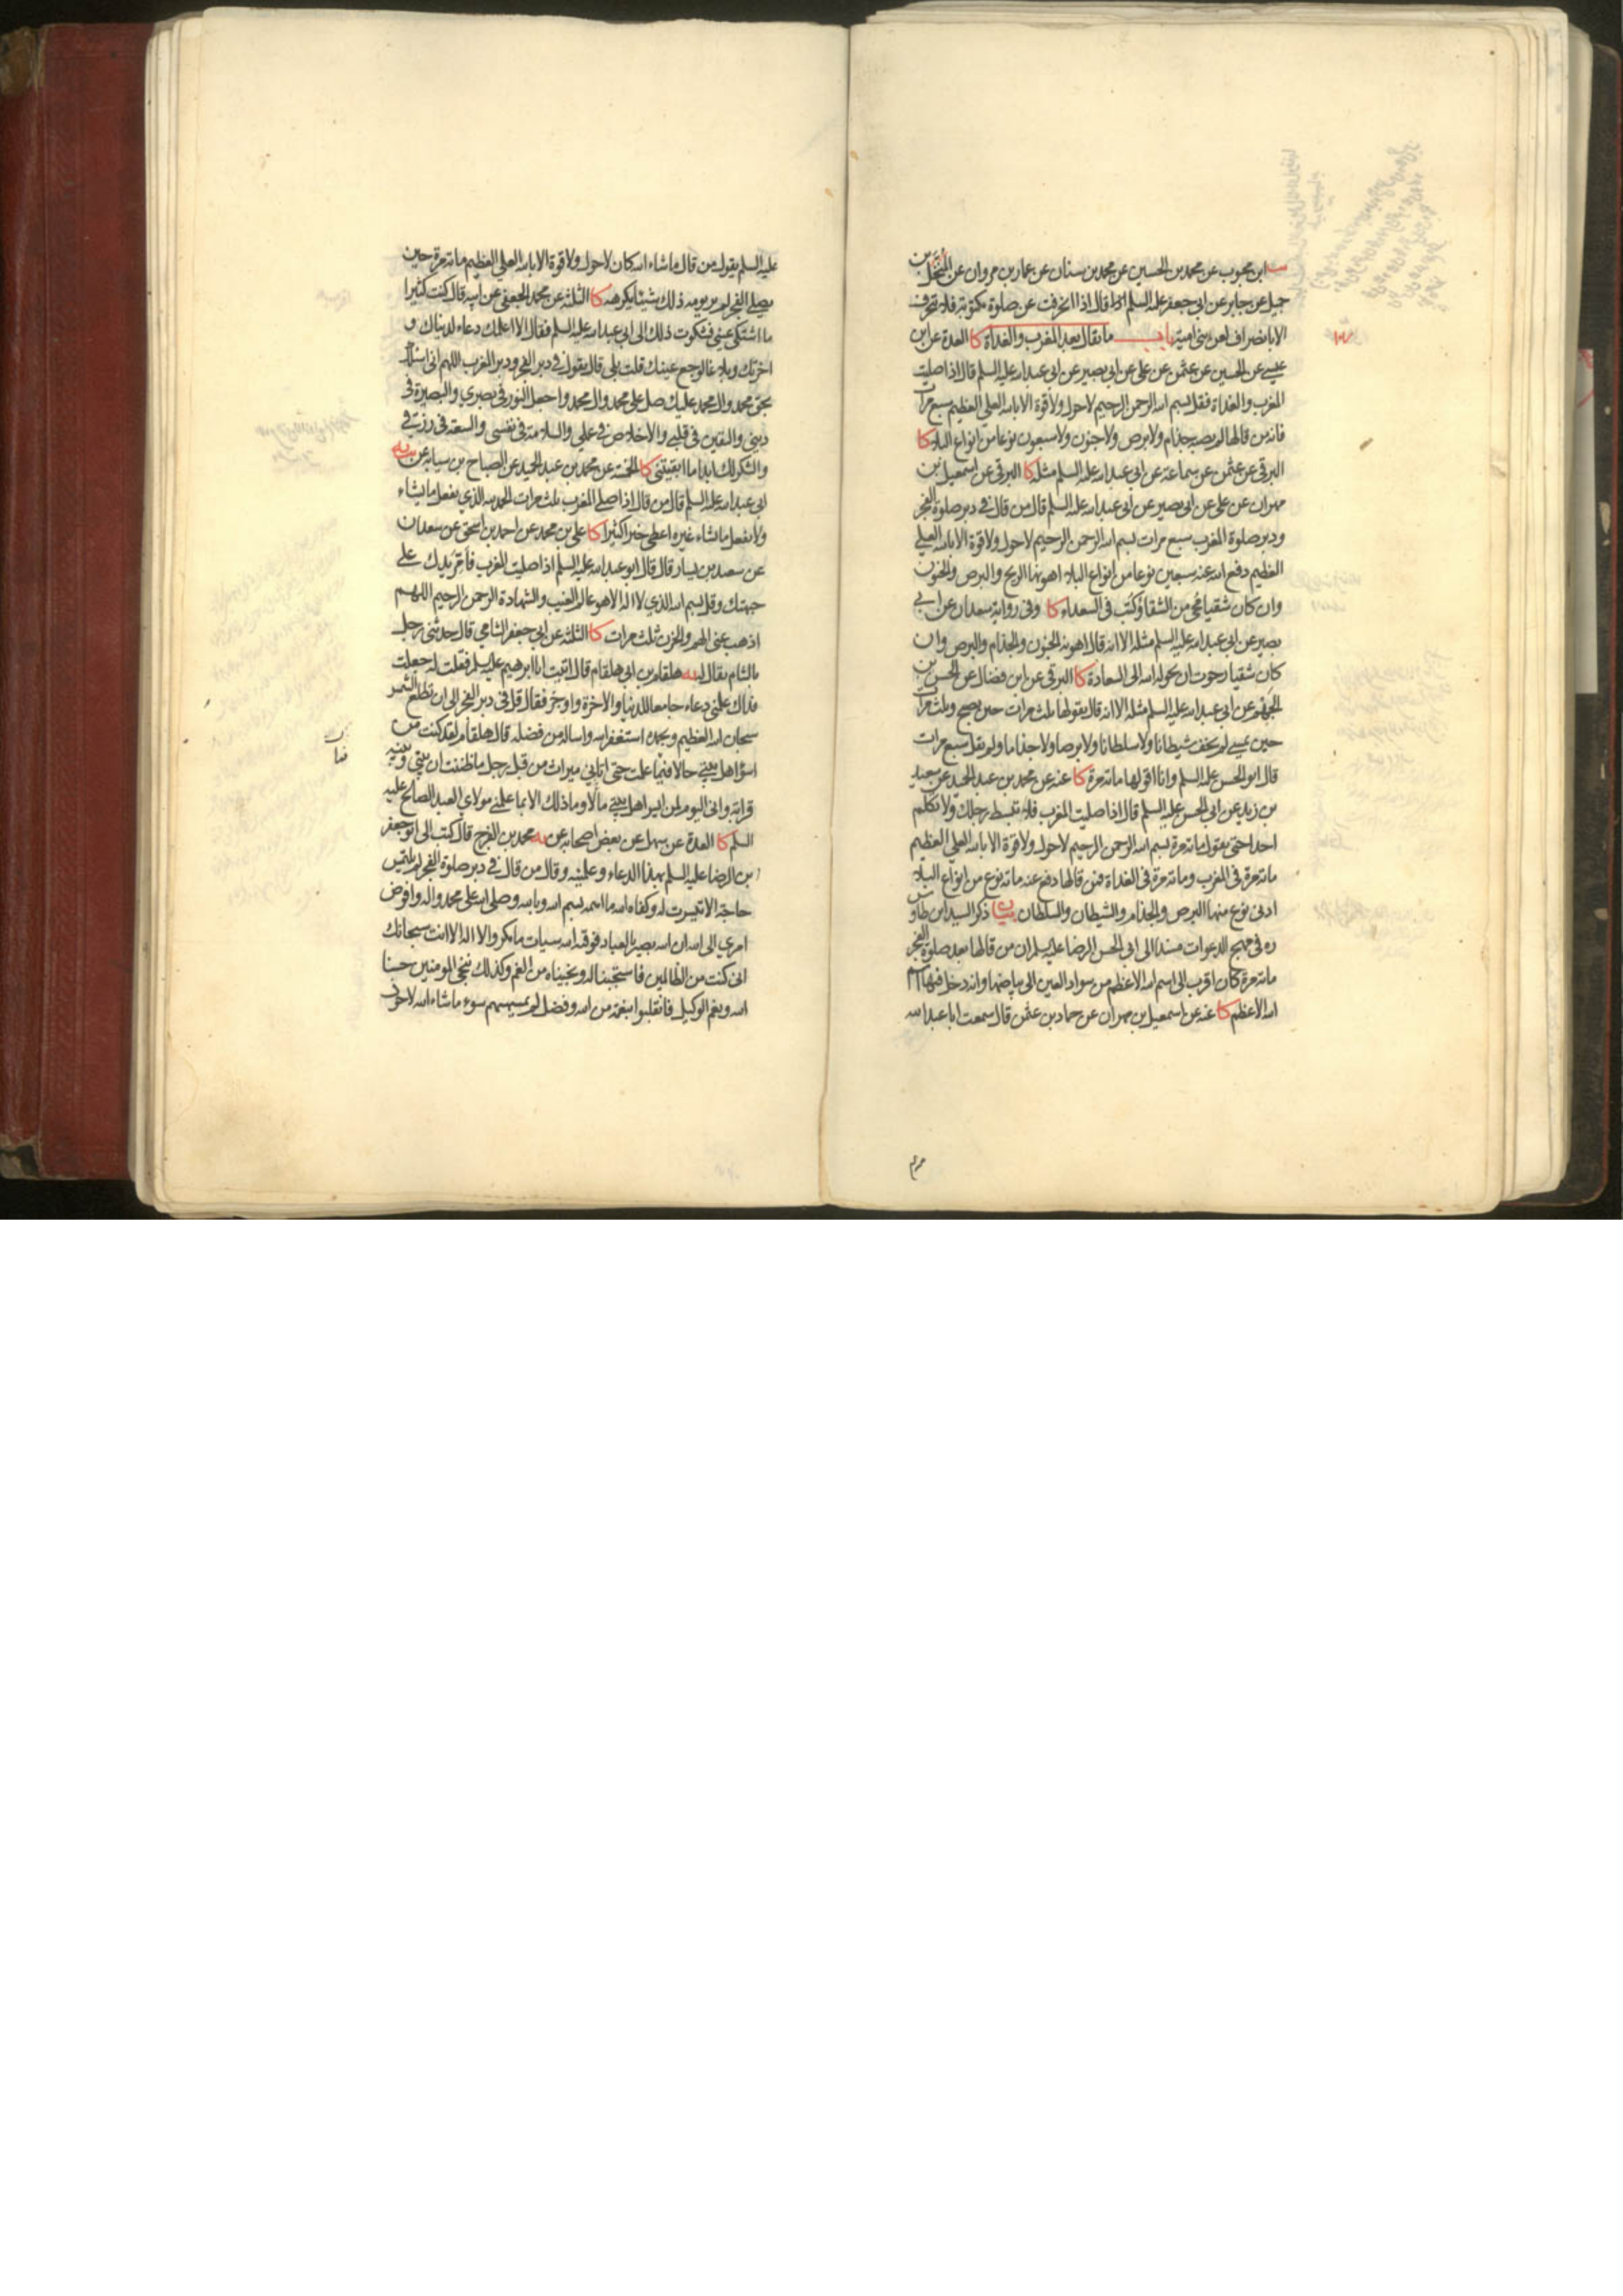 ابن محبوب عن محمد بن الحسين عن محمد بن سنان عن عمار بن مروان عن المنخل بن
جميل عن جابر عن ابي جعفر عليه السلم قال اذا انحرفت عن صلوة مكتوبة فلا تنحرف
الا بانصراف لعن بنى امية باب ما يقال بعد المغرب والغداة كا العدة عن ابن
عيسى عن الحسين عن عثمن عن على عن ابي بصير عن ابي عبد الله عليه السلم قال اذا صليت
المغرب والغداة فقل بسم الله الرحمن الرحيم لاحول ولا قوة الا بالله العلى العظيم سبع مرات
فانه من قالها لم يصبه جذام ولا برص ولا جنون ولا سبعون نوعا من انواع البلاء كا
البرقى عن عثمن عن سماعة عن ابي عبد الله عليه السلم مثله كا البرقى عن اسمعيل بن
مهران عن على عن ابي بصير عن ابي عبد الله عليه السلم قال من قال فى دبر صلوة الفجر
ودبر صلوة المغرب سبع مرات بسم الله الرحمن الرحيم لاحول ولا قوة الا بالله العلى
العظيم دفع الله عنه سبعين نوعا من انواع البلاء اهونها الريح والبرص والجنون
وان كان شقيا محى من الشقاء وكتب فى السعداء كا وفى رواية سعدان عن ابى
بصير عن ابي عبد الله عليه السلم مثله الا انه قال اهونه الجنون والجذام والبرص وان
كان شقيا رجوت ان يحوله الله الى السعادة كا البرقى عن ابن فضال عن الحسن بن
الجهم عن ابي عبد الله عليه السلم مثله الا انه قال يقولها ثلث مرات حين يصبح وثلث مرات
حين يمسى لم يخف شيطانا ولا سلطانا ولا برصا ولا جذاما ولم يقل سبع مرات
قال ابو الحسن عليه السلم وانا اقولها مائة مرة كا عنه عن محمد بن عبد الحميد عن سعيد
بن زيد عن ابى الحسن عليه السلم قال اذا صليت المغرب فلا تبسط رجلك ولا تكلم
احدا حتى تقول مائة مرة بسم الله الرحمن الرحيم لاحول ولا قوة الا بالله العلى العظيم
مائة مرة فى المغرب ومائة مرة فى الغداة فمن قالها دفع عنه مائة نوع من انواع البلاء
ادنى نوع منها البرص والجذام والشيطان والسلطان بيان ذكر السيد ابن طاوس
ره فى مهج الدعوات مسندا الى ابى الحسن الرضا عليه السلم ان من قالها بعد صلوة الفجر
مائة مرة كان اقرب الى اسم الله الاعظم من سواد العين الى بياضها وانه دخل فيها اسم
الله الاعظم كا عنه عن اسمعيل بن مهران عن حماد بن عثمن قال سمعت ابا عبد الله
عليه السلم يقول من قال ما شاء الله كان لاحول ولا قوة الا بالله العلى العظيم مائة مرة حين
يصلى الفجر لم ير يومه ذلك شيئا يكرهه كا الثلثة عن محمد الجعفى عن ابيه قال كنت كثيرا
ما اشتكى عينى فشكوت ذلك الى ابى عبد الله عليه السلم فقال الا اعلمك دعاء لدنياك و
اخرتك وبلاغا لوجع عينك قلت بلى قال تقول فى دبر الفجر ودبر المغرب اللهم انى اسئلك
بحق محمد وال محمد عليك صل على محمد وال محمد واجعل النور فى بصرى والبصيرة فى
دينى واليقين فى قلبى والاخلاص فى عملى والسلامة فى نفسى والسعة فى رزقى
والشكر لك ابدا ما ابقيتنى كا الخمسة عن محمد بن عبد الحميد عن الصباح بن سيابه عن
ابى عبد الله عليه السلم قال من قال اذا صلى المغرب ثلث مرات الحمد لله الذى يفعل ما يشاء
ولا يفعل ما يشاء غيره اعطى خيرا كثيرا كا على بن محمد عن احمد بن اسحق عن سعدان
عن سعيد بن يسار قال قال ابو عبد الله عليه السلم اذا صليت المغرب فامر يدك على
جبهتك وقل بسم الله الذى لا اله الا هو عالم الغيب والشهادة الرحمن الرحيم اللهم
اذهب عنى الهم والحزن ثلث مرات كا الثلثة عن ابى جعفر الشامى قال حدثنى رجل
بالشام يقال له هلقام بن ابى هلقام قال اتيت ابا ابرهيم عليه السلم فقلت له جعلت
فداك علمنى دعاء جامعا للدنيا والاخرة واوجز فقال قل فى دبر الفجر الى ان تطلع الشمس
سبحان الله العظيم وبحمده استغفر الله واساله من فضله قال هلقام لقد كنت من
اسوا اهل بيتى حالا فما علمت حتى اتانى ميراث من قبل رجل ما ظننت ان بينى وبينه
قرابة وانى اليوم لمن ايسر اهل بيتى مالا وما ذلك الا بما علمنى مولاى العبد الصالح عليه
السلم كا العدة عن سهل عن بعض اصحابه عن محمد بن الفرج قال كتب الى ابو جعفر
بن الرضا عليه السلم بهذا الدعاء وعلمنيه وقال من قال فى دبر صلوة الفجر لم يلتمس
حاجة الا تيسرت له وكفاه الله ما اهمه بسم الله وبالله وصلى الله على محمد واله وافوض
امرى الى الله ان الله بصير بالعباد فوقيه الله سيات ما مكروا لا اله الا انت سبحانك
انى كنت من الظالمين فاستجبنا له ونجيناه من الغم وكذلك ننجى المومنين حسبنا
الله ونعم الوكيل فانقلبوا بنعمة من الله وفضل لم يمسسهم سوء ما شاء الله لاحول